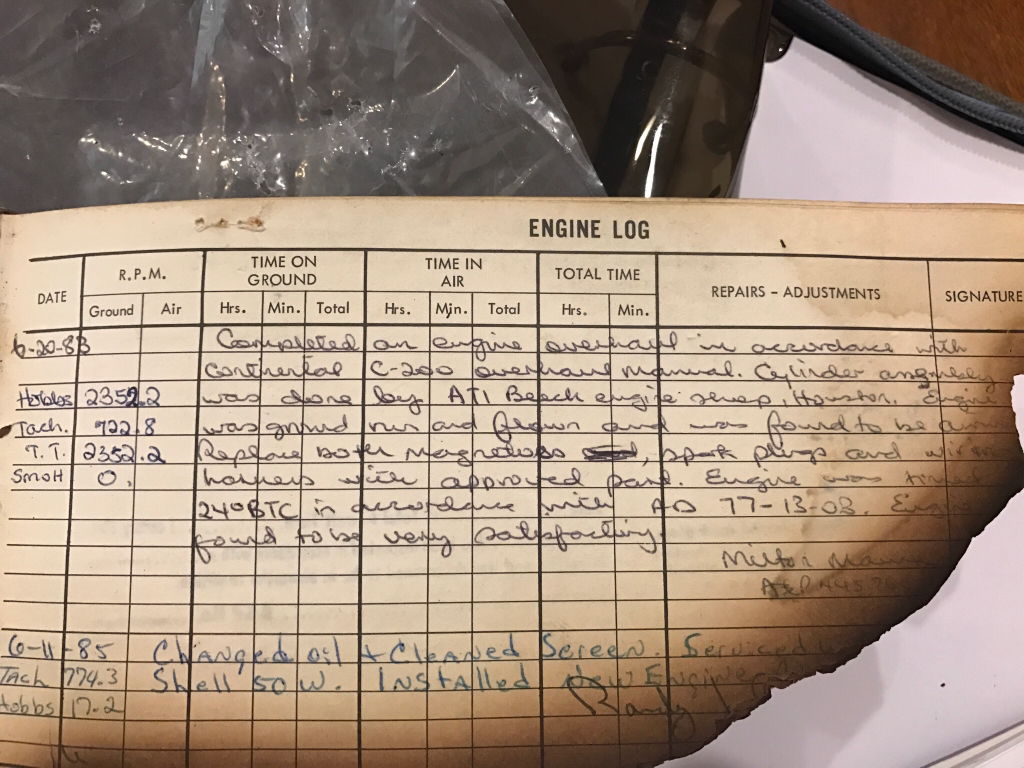 ENGINE LOG
DATE R.P.M. TIME ON GROUND TIME IN AIR TOTAL TIME REPAIRS - ADJUSTMENTS SIGNATURE
Ground Air Hrs. Min. Total Hrs. Min. Total Hrs. Min.
6-20-83 Completed an engine overhaul in accordance with
Continental C-200 overhaul manual. Cylinder assembly
Hobbs 2352.2 was done by ATI Beech engine shop, Houston. Engine
Tach. 722.8 was ground run and flown and was found to be
T.T. 2352.2 Replace both magnetoes , spark plugs and
SMOH 0. harness with approved part. Engine was timed
24° BTC in accordance with AD 77-13-03.
found to be very satisfactory.
Milton
A&P
6-11-85 Changed oil + Cleaned Screen. Serviced
Tach 774.3 Shell 50 W. Installed New Engine
Hobbs 17.2 Randy